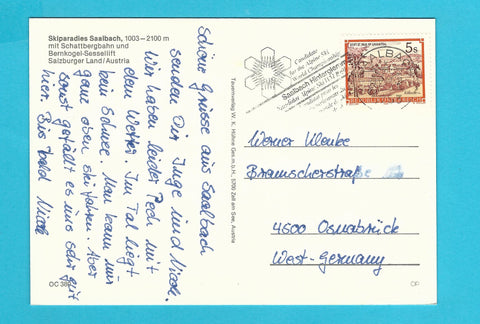 Skiparadies Saalbach, 1003 – 2100 m
mit Schattbergbahn und
Bernkogel-Sessellift
Salzburger Land/Austria
Schöne Grüsse aus Saalbach
senden Dir Inge und Nicole.
Wir haben leider Pech mit
dem Wetter. Im Tal liegt
kein Schnee. Man kann nur
ganz oben skifahren. Aber
sonst gefällt es uns sehr gut
hier. Bis bald Nicole
OC 38
Tauernverlag W. K. Hühne Ges.m.b.H., 5700 Zell am See, Austria
Candidate
for the Alpine Ski
World Championships
Saalbach Hinterglemm
5 s
REPUBLIK ÖSTERREICH
Werner Klenke
Bramscherstraße
4500 Osnabrück
West-Germany